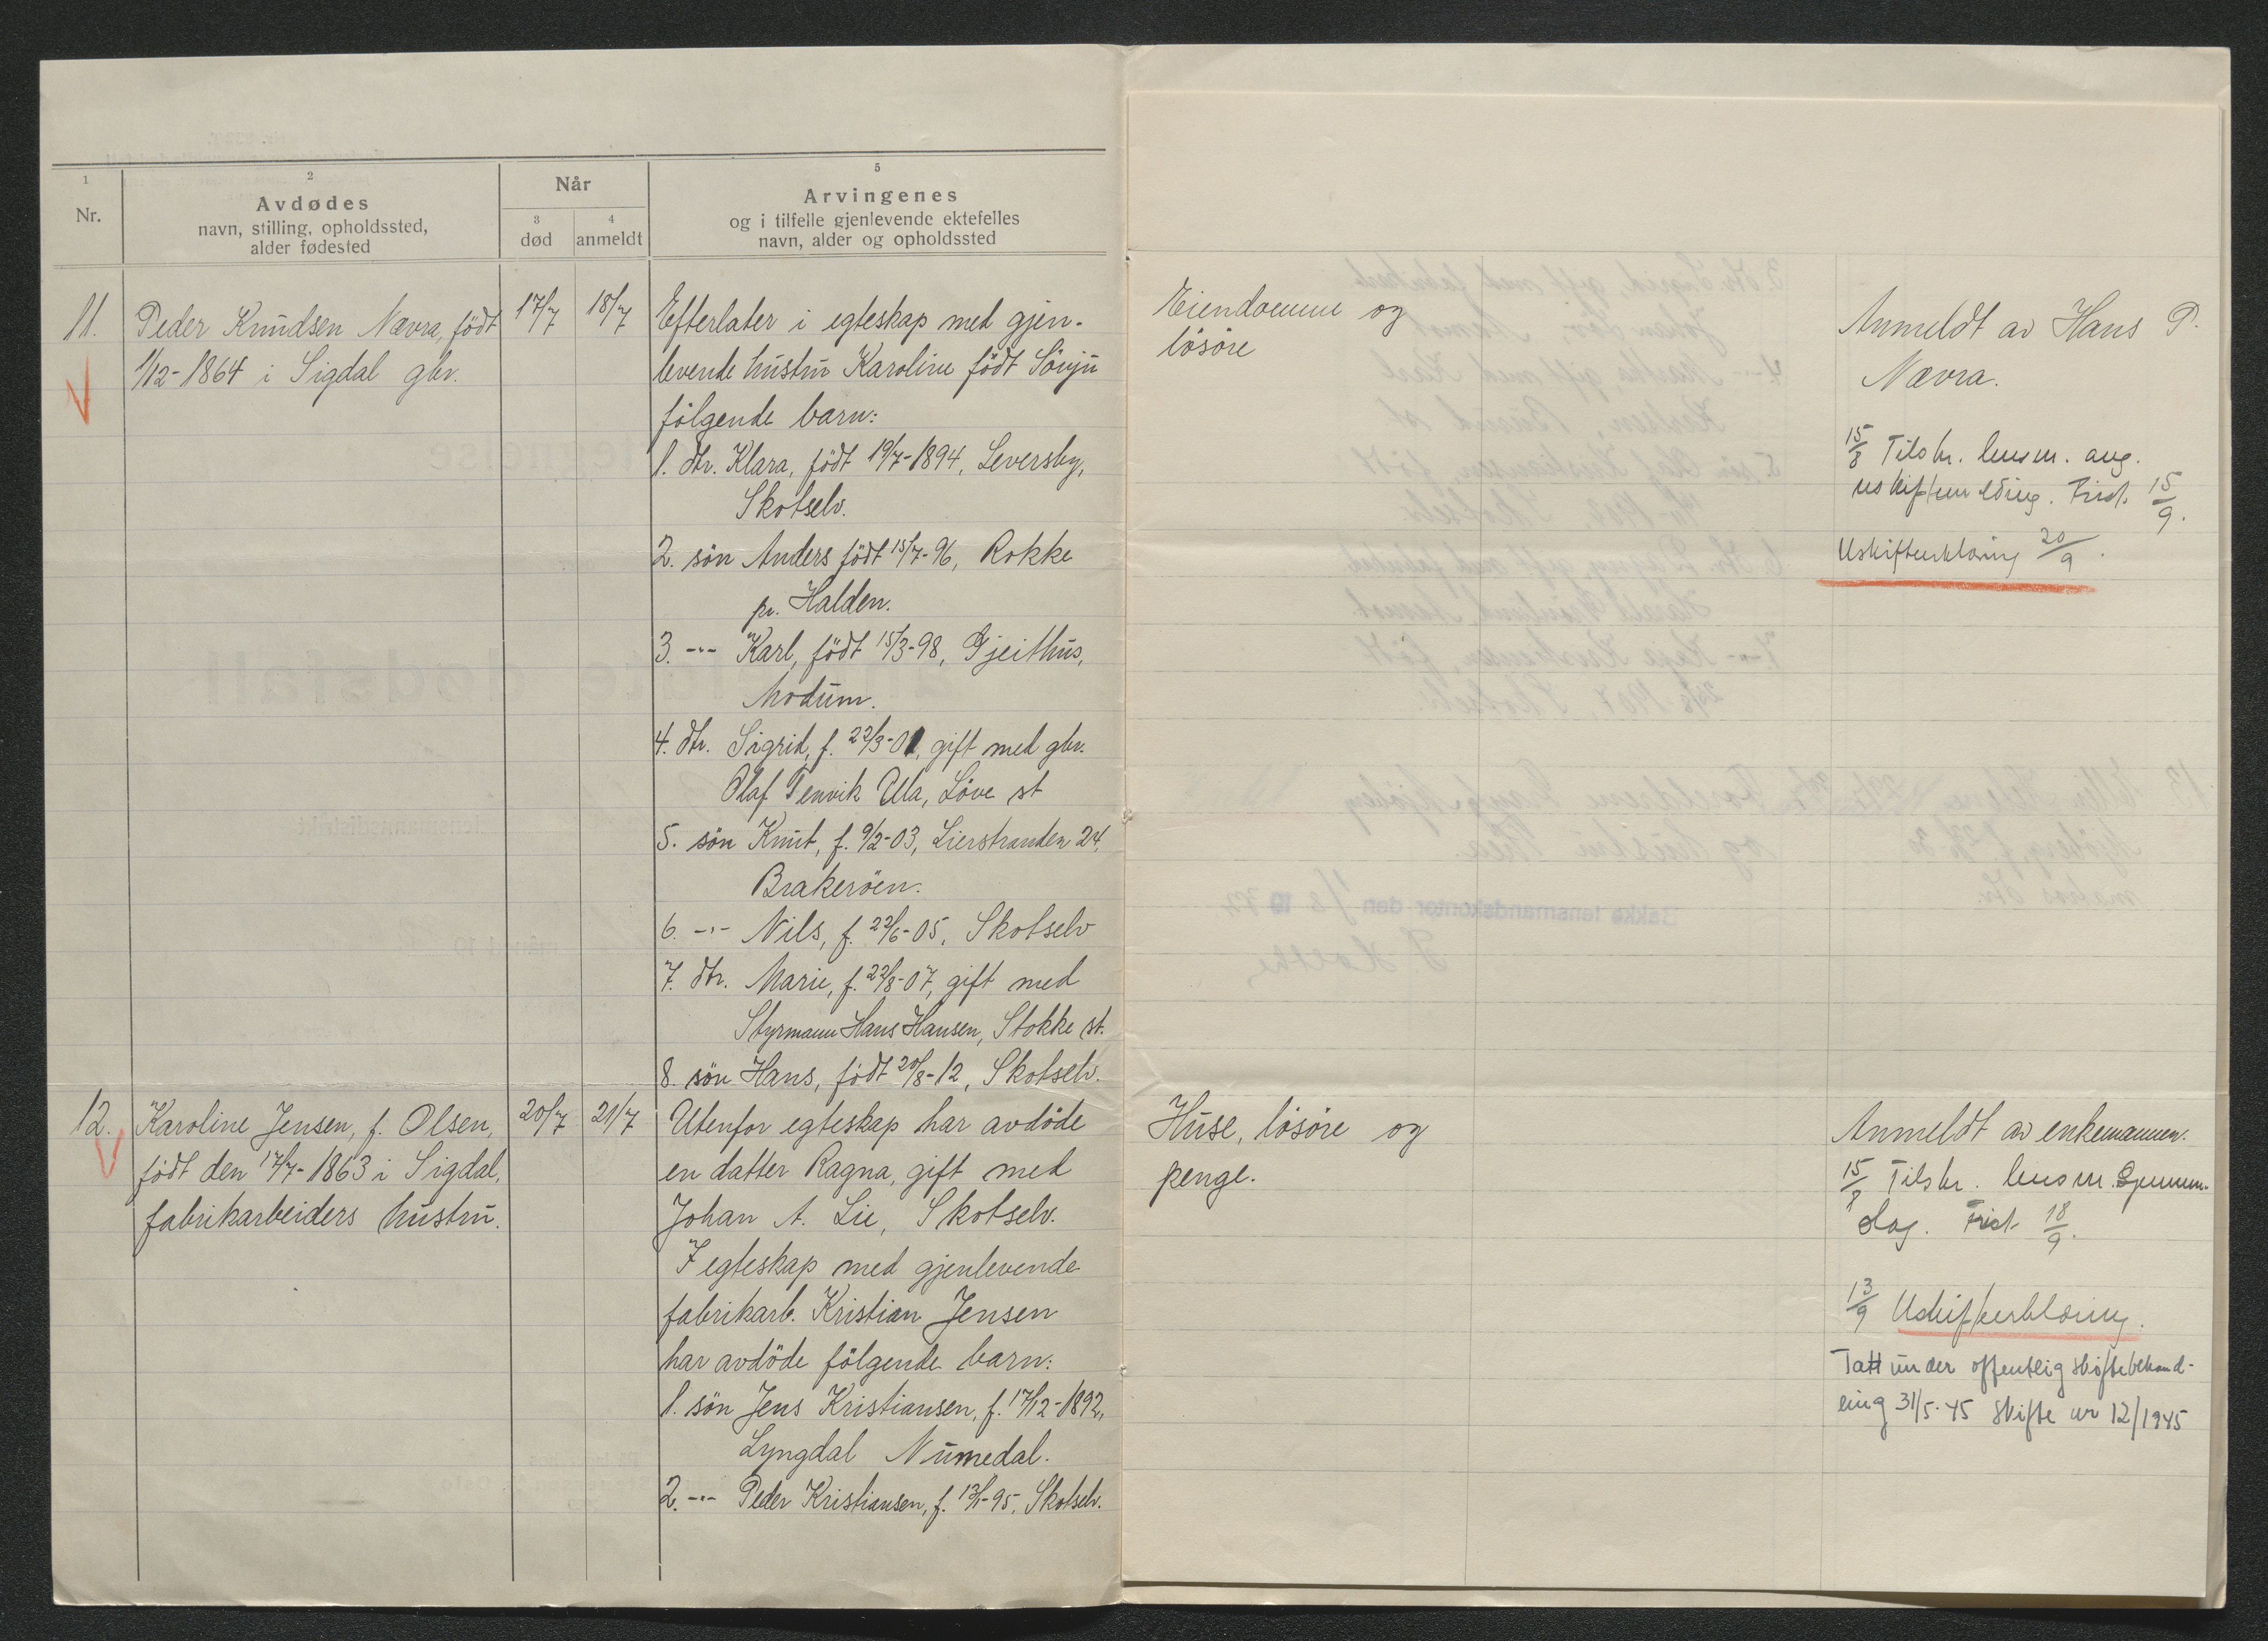 1
Nr.
2
Avdødes
navn, stilling, opholdssted,
alder fødested
Når
3
død
4
anmeldt
5
Arvingenes
og i tilfelle gjenlevende ektefelles
navn, alder og opholdssted
11. Peder Knudsen Nævra, født 17/7 18/7
1/12-1864 i Sigdal gbr.
Efterlater i egteskap med gjen-
levende hustru Karoline født
følgende barn:
1. dtr. Klara, født 19/7-1894, Leversby,
Skotselv.
2. søn Anders født 15/7-96, Rokke
pr. Halden.
3. -"- Karl, født 15/3-98, Gjeithus,
Modum.
4. dtr. Sigrid, f. 22/3-01, gift med gbr.
Olaf Tenvik Ula, Løve st
5. søn Knut, f. 9/2-03, Lierstranden 24,
Brakerøen.
6. -"- Nils, f. 22/6-05, Skotselv
7. dtr. Marie, f. 22/8-07, gift med
Styrmann Hans Hansen, Stokke st.
8. søn Hans, født 20/8-12, Skotselv.
Eiendomme og
løsøre
Anmeldt av Hans P.
Nævra.
15/8 Tilskr. lensm. ang.
uskiftemelding. Frist 15/9.
Uskifteerklæring 20/9.
12. Karoline Jensen, f. Olsen, 20/7 21/7
født den 17/7-1863 i Sigdal,
fabrikarbeiders hustru.
Utenfor egteskap har avdøde
en datter Ragna, gift med
Johan A. Lie, Skotselv.
I egteskap med gjenlevende
fabrikarb. Kristian Jensen
har avdøde følgende barn:
1. søn Jens Kristiansen, f. 17/12-1892,
Lyngdal Numedal.
2. -"- Peder Kristiansen, f. 13/1-95, Skotselv.
Huse, løsøre og
penge.
Anmeldt av enkemannen.
15/8 Tilskr. lensm.
dag. Frist 18/9.
13/9 Uskifteerklæring.
Tatt under offentlig skiftebehand-
ling 31/5-45 Skifte nr 12/1945